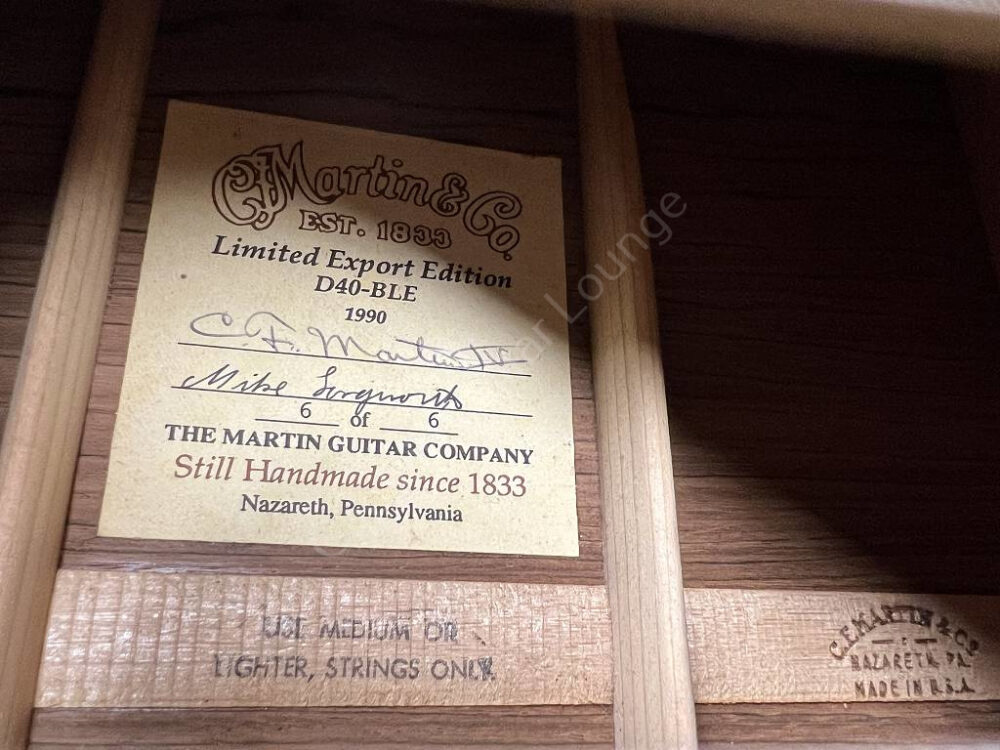 C.F. Martin & Co.
EST. 1833
Limited Export Edition
D40-BLE
1990
C. F. Martin IV
Mike
6 of 6
THE MARTIN GUITAR COMPANY
Still Handmade since 1833
Nazareth, Pennsylvania
USE MEDIUM OR
LIGHTER, STRINGS ONLY.
C.F. MARTIN & CO.
NAZARETH, PA.
MADE IN U.S.A.
ar Lounge